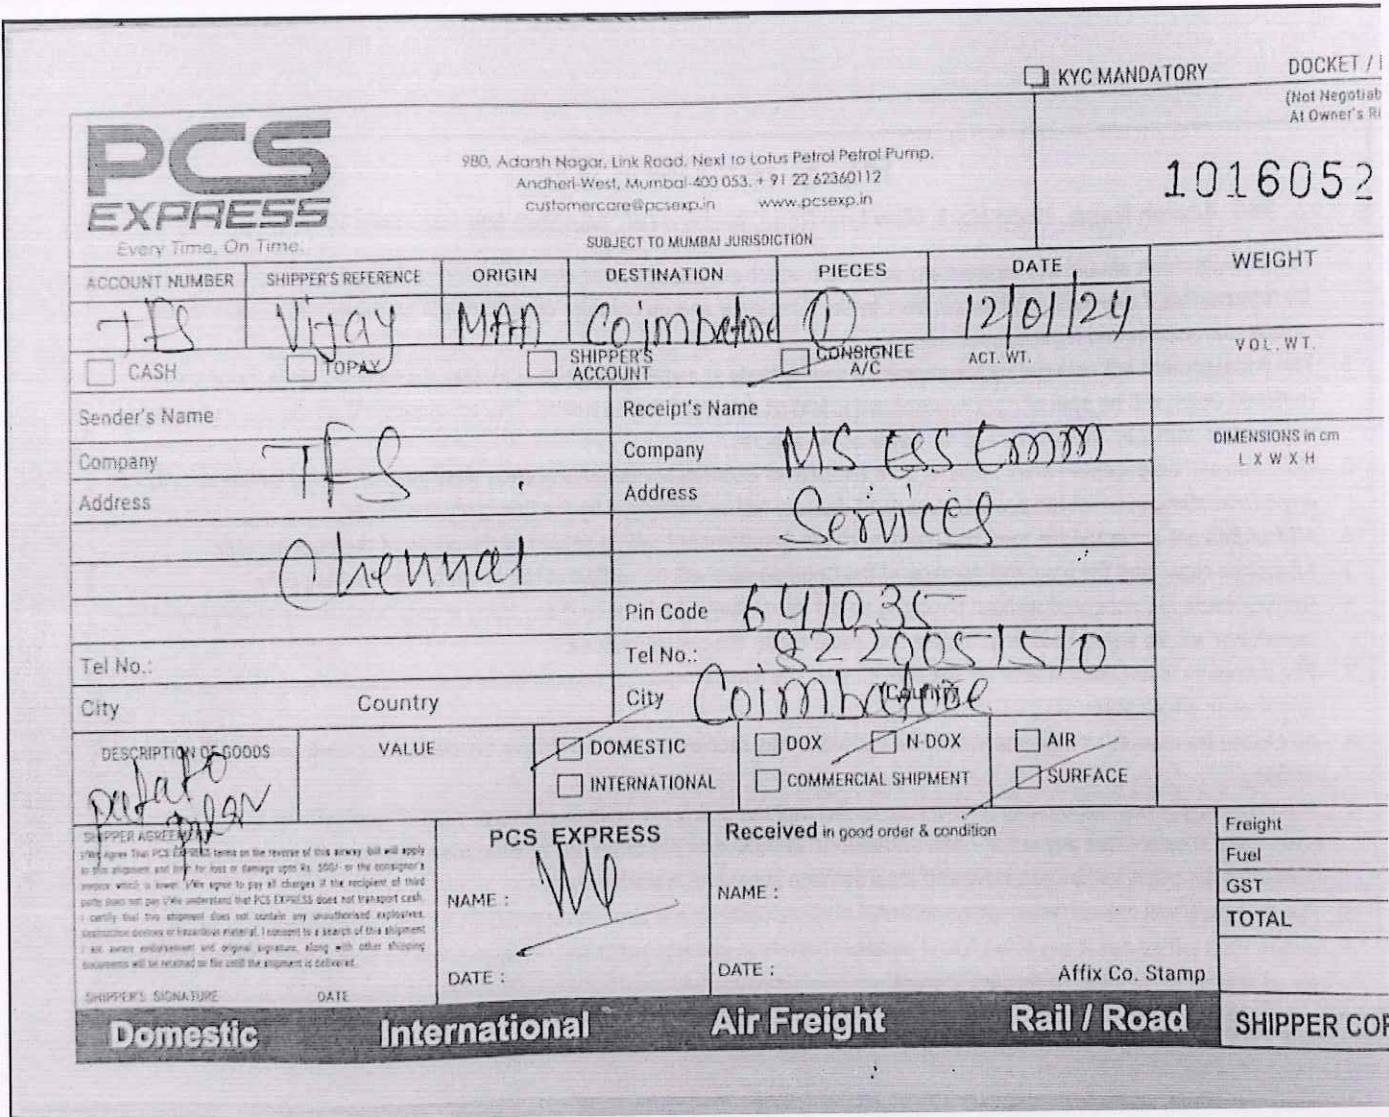 KYC MANDATORY
DOCKET /
(Not Negotiab
At Owner's Ri
PCS
EXPRESS
Every Time, On Time.
980, Adarsh Nagar, Link Road, Next to Lotus Petrol Petrol Pump,
Andheri-West, Mumbai-400 053. + 91 22 62360112
customercare@pcsexp.in www.pcsexp.in
SUBJECT TO MUMBAI JURISDICTION
1016052
ACCOUNT NUMBER SHIPPER'S REFERENCE ORIGIN DESTINATION PIECES DATE WEIGHT
TFS Vijay MAA Coimbatore 1 12/01/24
CASH TOPAY SHIPPER'S ACCOUNT CONSIGNEE A/C ACT. WT. VOL. WT.
Sender's Name Receipt's Name
Company TFS Company MS ESS Emm
DIMENSIONS in cm
L X W X H
Address Address Services
Chennai
Pin Code 641035
Tel No.: Tel No.: 9220051510
City Country City Coimbatore Country
DESCRIPTION OF GOODS VALUE DOMESTIC DOX N-DOX AIR
INTERNATIONAL COMMERCIAL SHIPMENT SURFACE
SHIPPER AGREEMENT
I/We Agree That PCS EXPRESS terms on the reverse of this airway bill will apply
to this shipment and limit for loss or damage upto Rs. 500/- or the consignor's
invoice which is lower. I/We agree to pay all charges if the recipient of third
party does not pay I/We understand that PCS EXPRESS does not transport cash.
I certify that this shipment does not contain any unauthorised explosives,
destruction devices or hazardous material. I consent to a search of this shipment
endorsement and original signature, along with other shipping
documents will be retained on file until the shipment is delivered.
SHIPPER'S SIGNATURE DATE
PCS EXPRESS
NAME :
DATE :
Received in good order & condition
NAME :
DATE : Affix Co. Stamp
Freight
Fuel
GST
TOTAL
Domestic International Air Freight Rail / Road SHIPPER COP